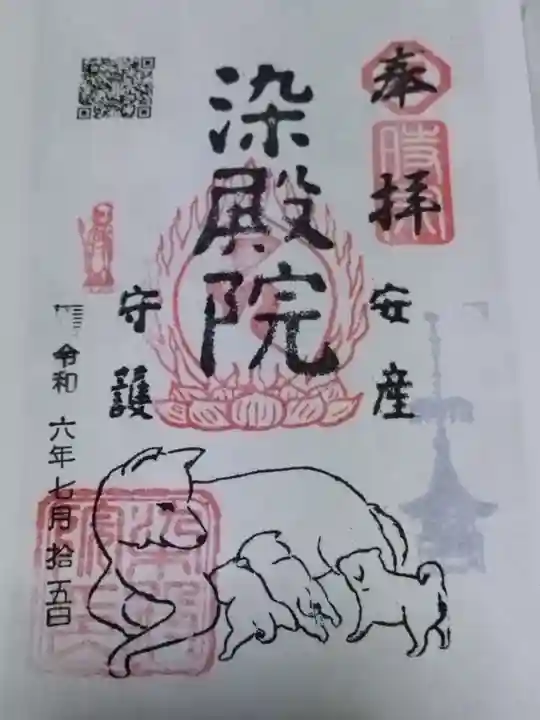 奉拝
安産
染殿院
守護
令和 六年七月拾五日